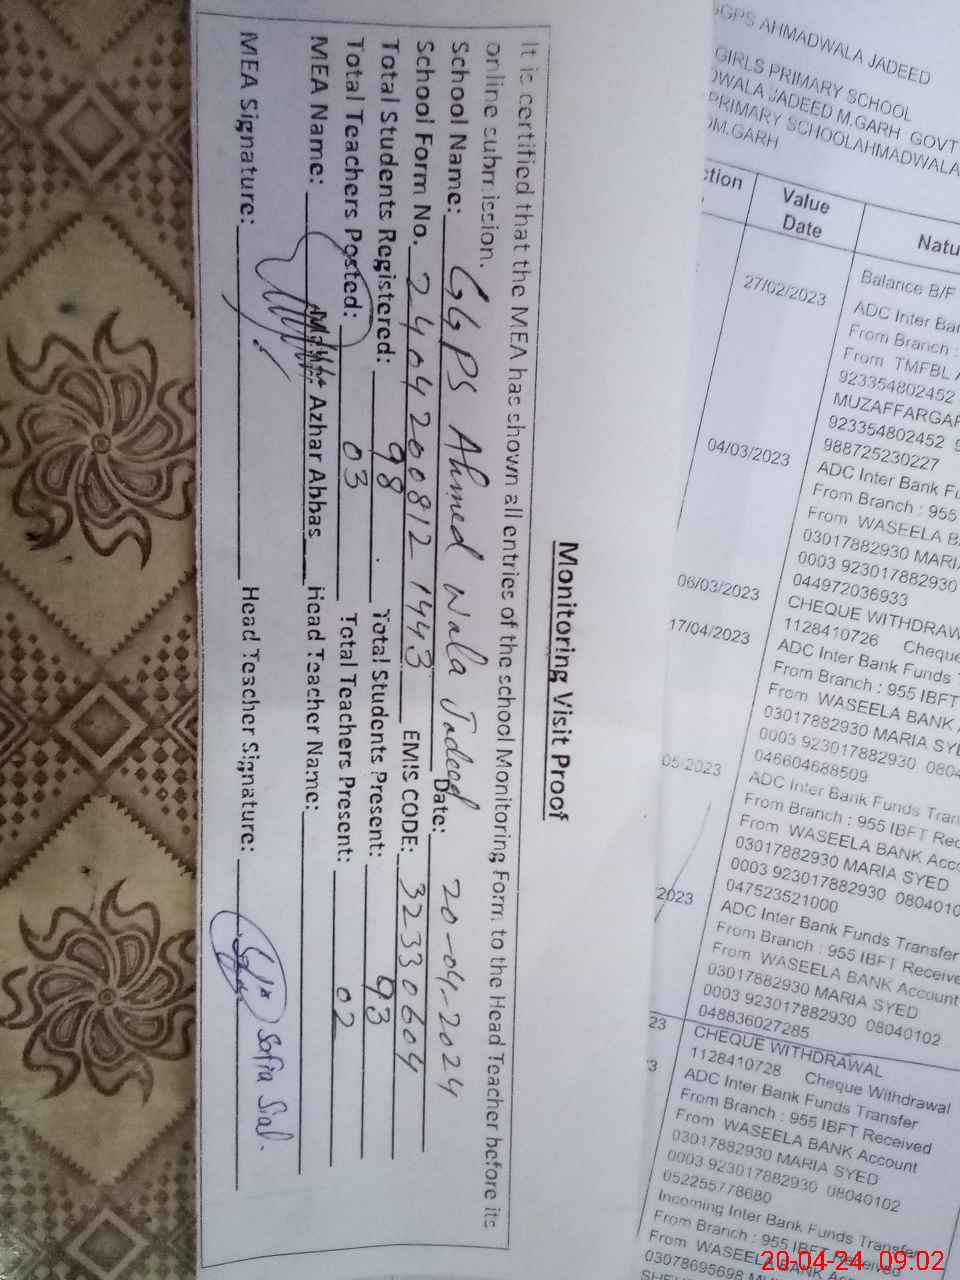 Monitoring Visit Proof
It is certified that the MEA has shown all entries of the school Monitoring Form to the Head Teacher before its
online submission.
School Name: GGPS Ahmed Wala Jadeed Date: 20-04-2024
School Form No. 24042008121443 EMIS CODE: 32330604
Total Students Registered: 98 Total Students Present: 93
Total Teachers Posted: 03 Total Teachers Present: 02
MEA Name: Azhar Abbas Head Teacher Name:
MEA Signature: Head Teacher Signature: Safia Sial
GGPS AHMADWALA JADEED
GIRLS PRIMARY SCHOOL
JADEED M.GARH GOVT
PRIMARY SCHOOLAHMADWALA
M.GARH
Value
Date
27/02/2023
Balance B/F
ADC Inter
From Branch :
From TMFBL
923354802452
923354802452
988725230227
04/03/2023
ADC Inter Bank
From Branch : 955
From WASEELA
03017882930
0003 923017882930
044972036933
06/03/2023
CHEQUE
1128410726 Cheque
17/04/2023
ADC Inter Bank Funds
From Branch : 955 IBFT
From WASEELA BANK
03017882930 MARIA
0003 923017882930
046604688509
05/2023
ADC Inter Bank Funds
From Branch : 955 IBFT
From WASEELA BANK
03017882930 MARIA SYED
0003 923017882930
047523521000
2023
ADC Inter Bank Funds Transfer
From Branch : 955 IBFT
From WASEELA BANK Account
03017882930 MARIA SYED
0003 923017882930 08040102
048836027285
23
CHEQUE WITHDRAWAL
1128410728 Cheque Withdrawal
3
ADC Inter Bank Funds Transfer
From Branch : 955 IBFT Received
From WASEELA BANK Account
03017882930 MARIA SYED
0003 923017882930 08040102
052255778680
Incoming Inter Bank Funds Transfer
From Branch : 955 IBFT Received
From WASEELA BANK
03078695698
20-04-24 09:02